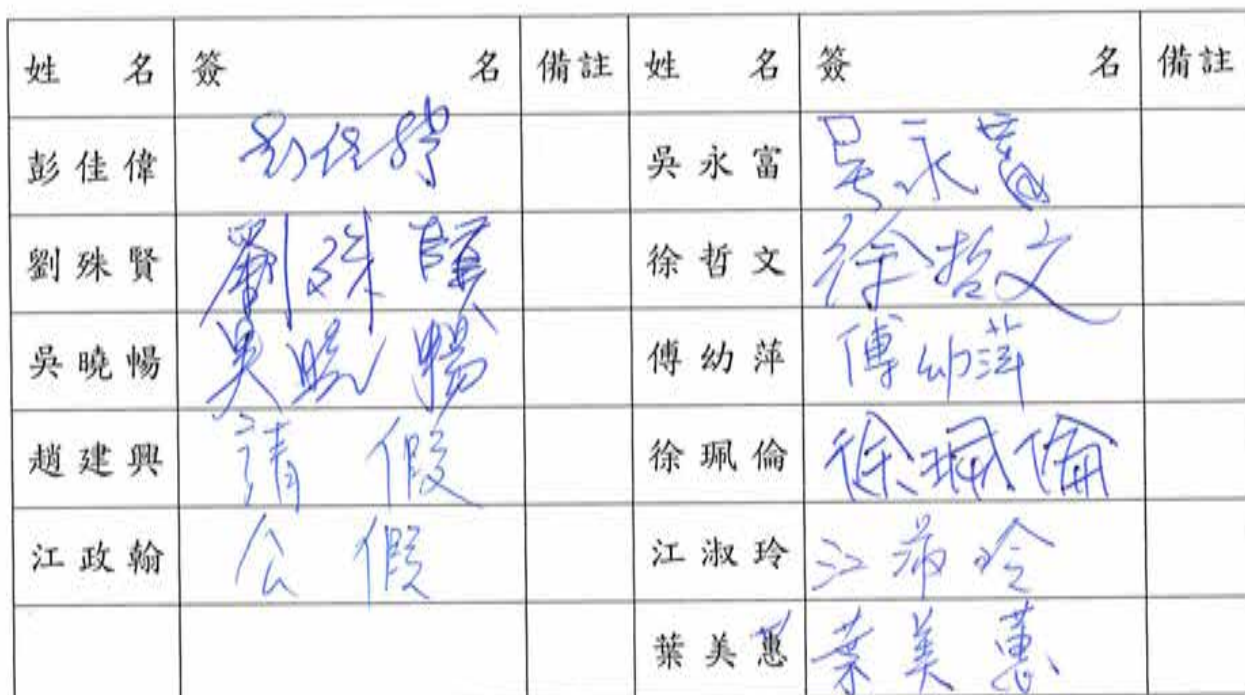 姓名 簽名 備註 姓名 簽名 備註
彭佳偉 彭佳偉 吳永富 吳永富
劉殊賢 劉殊賢 徐哲文 徐哲文
吳曉暢 吳曉暢 傅幼萍 傅幼萍
趙建興 請假 徐珮倫 徐珮倫
江政翰 公假 江淑玲 江淑玲
葉美惠 葉美蕙